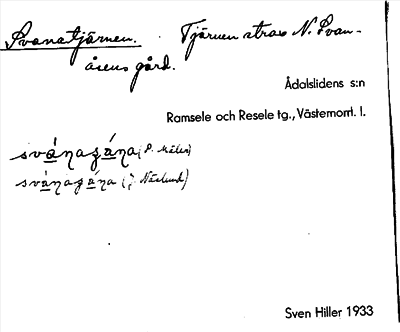 Svanatjärnen. Tjärnen strax N. Svan-
åsens gård.
Ådalslidens s:n
Ramsele och Resele tg., Västernorrl. l.
(P. Mälen)
(J. Näslund)
Sven Hiller 1933